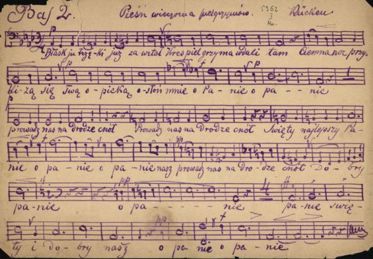 Bas 2. Pieśń wieczorna pielgrzymów. Rücken
Blask już już za wzrok Twoj pielgrzyma oddali tam ciemna noc przy-
bi-żą się Twą opieką o-słoń mnie o Pa-nie o pa - - nie
prowadź nas na drodze cnót Prowadź nas na Drodze cnót Święty najlepszy Pa-
nie o pa-nie o pa-nie nasz prowadź nas na Dro-dze cnót Do-bry
pa-nie o pa - - - - - nie pa-nie świę-
ty i do-bry nasz o pa-nie o pa-nie